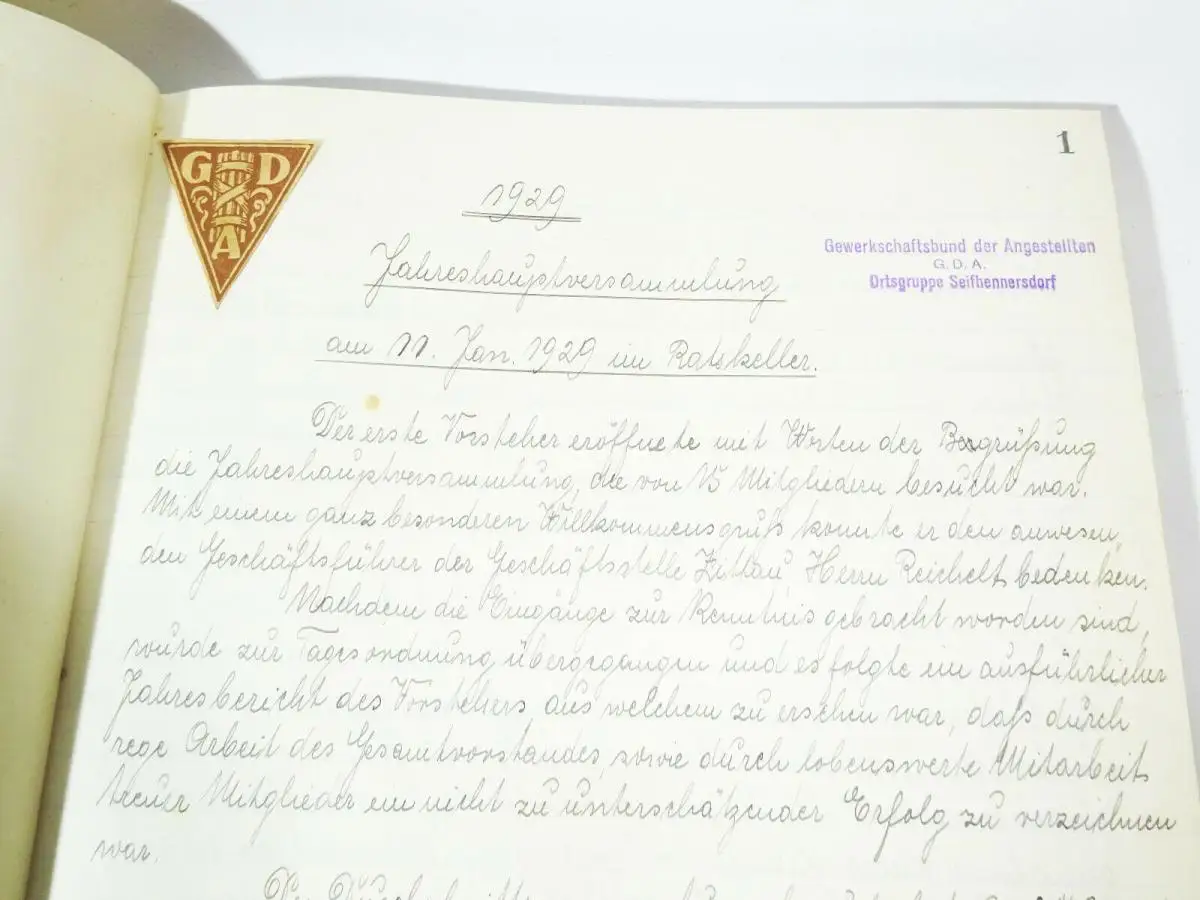 1
G D A
1929
Gewerkschaftsbund der Angestellten
G. D. A.
Ortsgruppe Seifhennersdorf
Jahreshauptversammlung
am 11. Jan. 1929 im Ratskeller.
Der erste Vorsteher eröffnete mit Worten der Begrüßung
die Jahreshauptversammlung, die von 15 Mitgliedern besucht war.
Mit einem ganz besonderen Willkommensgruß konnte er den anwesen,
den Geschäftsführer der Geschäftsstelle Zittau Herrn Reichelt bedenken.
Nachdem die Eingänge zur Kenntnis gebracht worden sind,
wurde zur Tagesordnung übergegangen und es folgte ein ausführlicher
Jahresbericht des Vorstehers, aus welchem zu ersehen war, daß durch
rege Arbeit des Gesamtvorstandes, sowie durch lobenswerte Mitarbeit
treuer Mitglieder ein nicht zu unterschätzender Erfolg zu verzeichnen
war.